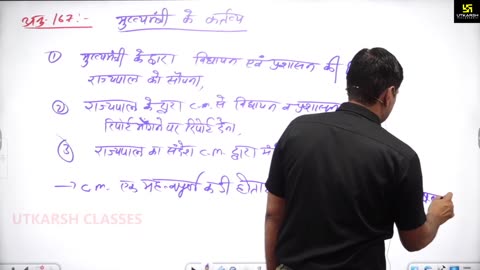 अनु. 167:- मुख्यमंत्री के कर्तव्य
UTKARSH
① मुख्यमंत्री के द्वारा विधायन एवं प्रशासन की
राज्यपाल को सौंपना,
② राज्यपाल के द्वारा C.M. से विधायन व प्रशासन
रिपोर्ट माँगने पर रिपोर्ट देना,
③ राज्यपाल का संदेश C.M. द्वारा
→ C.M. एक महत्वपूर्ण कडी होता
UTKARSH CLASSES